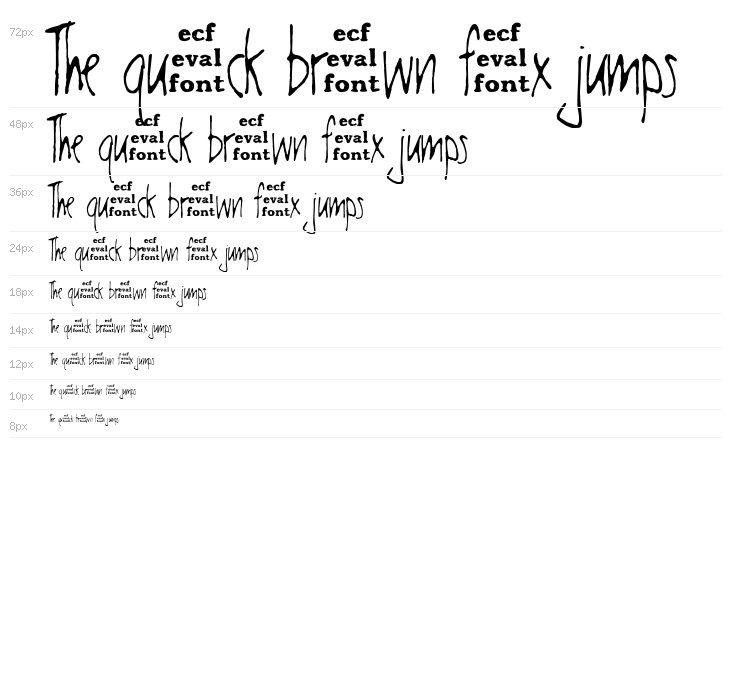 72px The qu ecf eval font ck br ecf eval font wn f ecf eval font x jumps
48px The qu ecf eval font ck br ecf eval font wn f ecf eval font x jumps
36px The qu ecf eval font ck br ecf eval font wn f ecf eval font x jumps
24px The qu ecf eval font ck br ecf eval font wn f ecf eval font x jumps
18px The qu ecf eval font ck br ecf eval font wn f ecf eval font x jumps
14px The qu ecf eval font ck br ecf eval font wn f ecf eval font x jumps
12px The qu ecf eval font ck br ecf eval font wn f ecf eval font x jumps
10px The qu ecf eval font ck br ecf eval font wn f ecf eval font x jumps
8px The qu ecf eval font ck br ecf eval font wn f ecf eval font x jumps